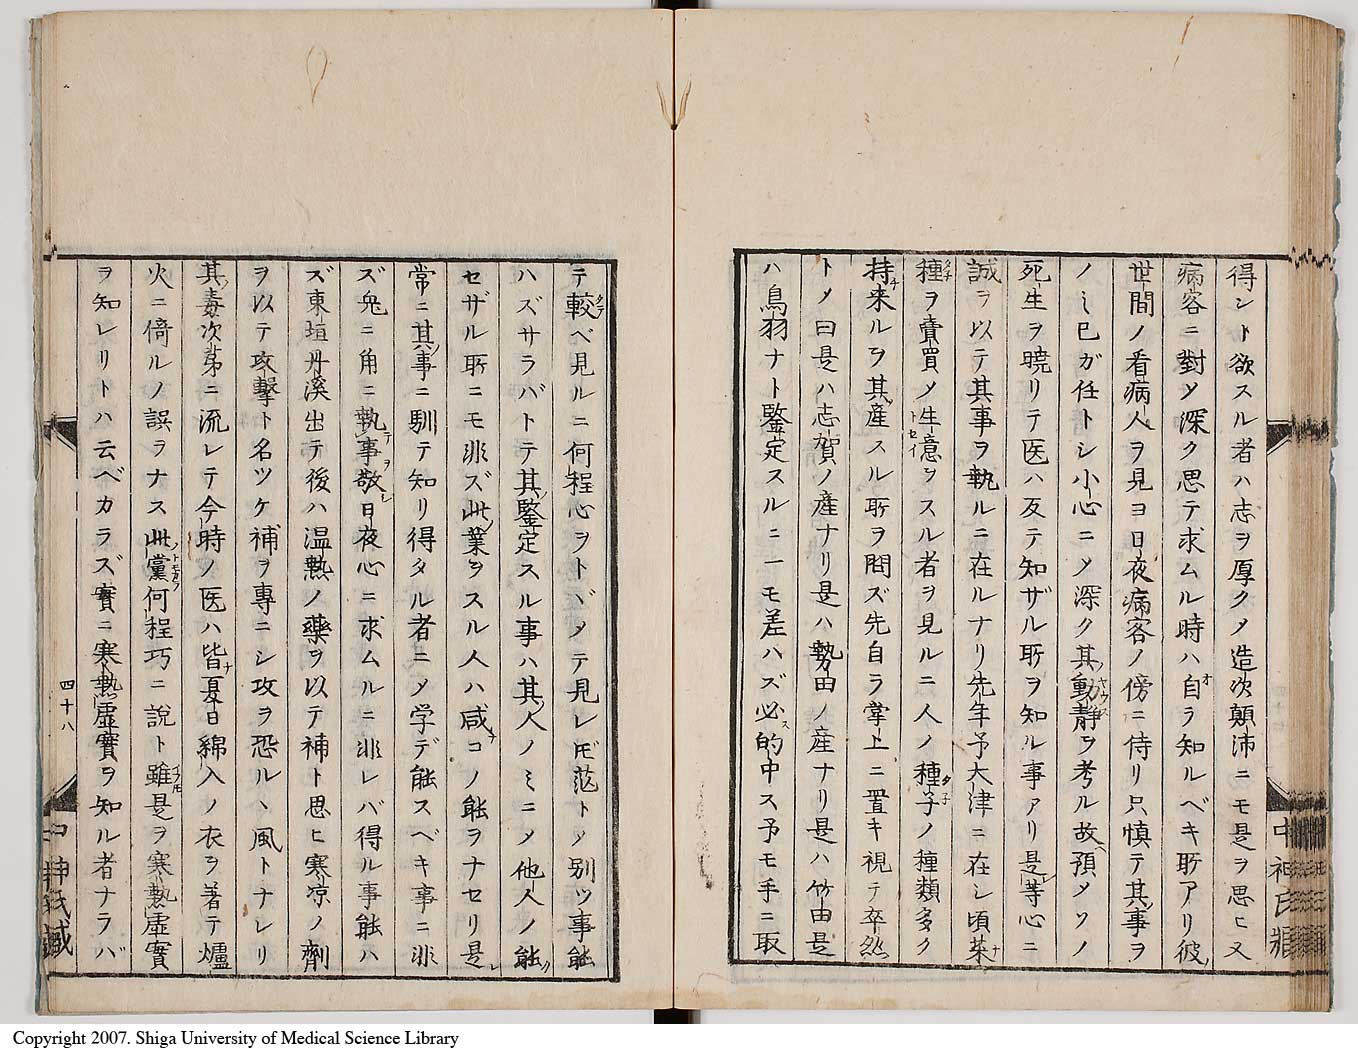 得ント欲スル者ハ志ヲ厚クメ造次顛沛ニモ是ヲ思ヒ又
病客ニ對メ深ク思テ求ムル時ハ自ラ知ルベキ所アリ彼
世間ノ看病人ヲ見ヨ日夜病客ノ傍ニ侍リ只慎テ其事ヲ
ノミ已ガ任トシ小心ニメ深ク其動静ヲ考ル故預メソノ
死生ヲ曉リテ医ハ反テ知ザル所ヲ知ル事アリ是等心ニ
誠ヲ以テ其事ヲ執ルニ在ルナリ先年予大津ニ在シ頃菜
種ヲ賣買メ生意ヲスル者ヲ見ルニ人ノ種子ノ種類多ク
持来ルヲ其産スル所ヲ問ズ先自ラ掌上ニ置キ視テ卒然
トメ曰是ハ志賀ノ産ナリ是ハ勢田ノ産ナリ是ハ竹田是
ハ鳥羽ナト鑒定スルニ一モ差ハズ必的中ス予モ手ニ取
中神氏藏
テ較ベ見ルニ何程心ヲトヾメテ見レ𪜈茫トメ別ツ事能
ハズサラバトテ其鑒定スル事ハ其人ノミニメ他人ノ能
セザル所ニモ非ズ此業ヲスル人ハ咸コノ能ヲナセリ是
常ニ其事ニ馴テ知リ得タル者ニメ学デ能スベキ事ニ非
ズ兎ニ角ニ執事敬日夜心ニ求ムルニ非レバ得ル事能ハ
ズ東垣丹溪出テ後ハ温熱ノ藥ヲ以テ補ト思ヒ寒凉ノ劑
ヲ以テ攻擊ト名ツケ補ヲ專ニシ攻ヲ恐ルヽ風トナレリ
其毒次第ニ流レテ今時ノ医ハ皆夏日綿入ノ衣ヲ著テ爐
火ニ倚ルノ誤ヲナス此黨何程巧ニ說ト雖是ヲ寒熱虛實
ヲ知レリトハ云ベカラズ實ニ寒熱虛實ヲ知ル者ナラバ
四十八
中神氏藏
Copyright 2007. Shiga University of Medical Science Library